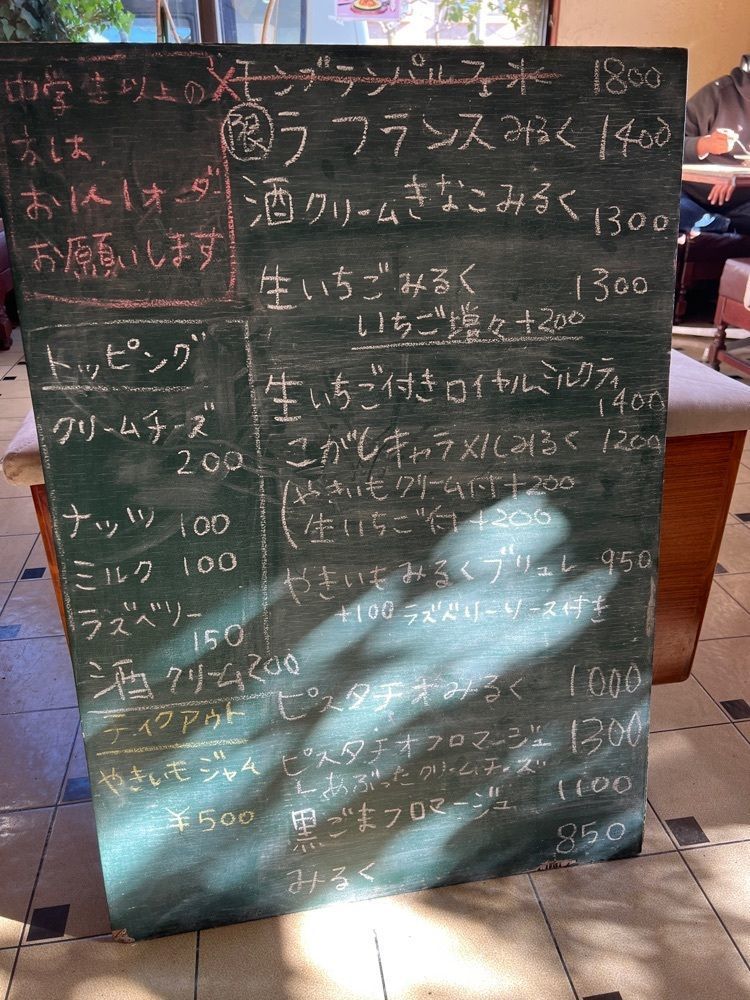 中学生以上の
方は、
お1人1オーダー
お願いします
トッピング
クリームチーズ
200
ナッツ 100
ミルク 100
ラズベリー
150
酒クリーム200
テイクアウト
やきいもジャム
¥500
×モンブランパルフェ氷 1800
限 ラ フランスみるく 1400
酒クリームきなこみるく
1300
生いちごみるく 1300
いちご増々+200
生いちご付きロイヤルミルクティ
1400
こがしキャラメルみるく 1200
(やきいもクリーム付+200
生いちご付+200
やきいもみるくブリュレ 950
+100 ラズベリーソース付き
ピスタチオみるく 1000
ピスタチオフロマージュ 1300
あぶったクリームチーズ
黒ごまフロマージュ 1100
みるく 850